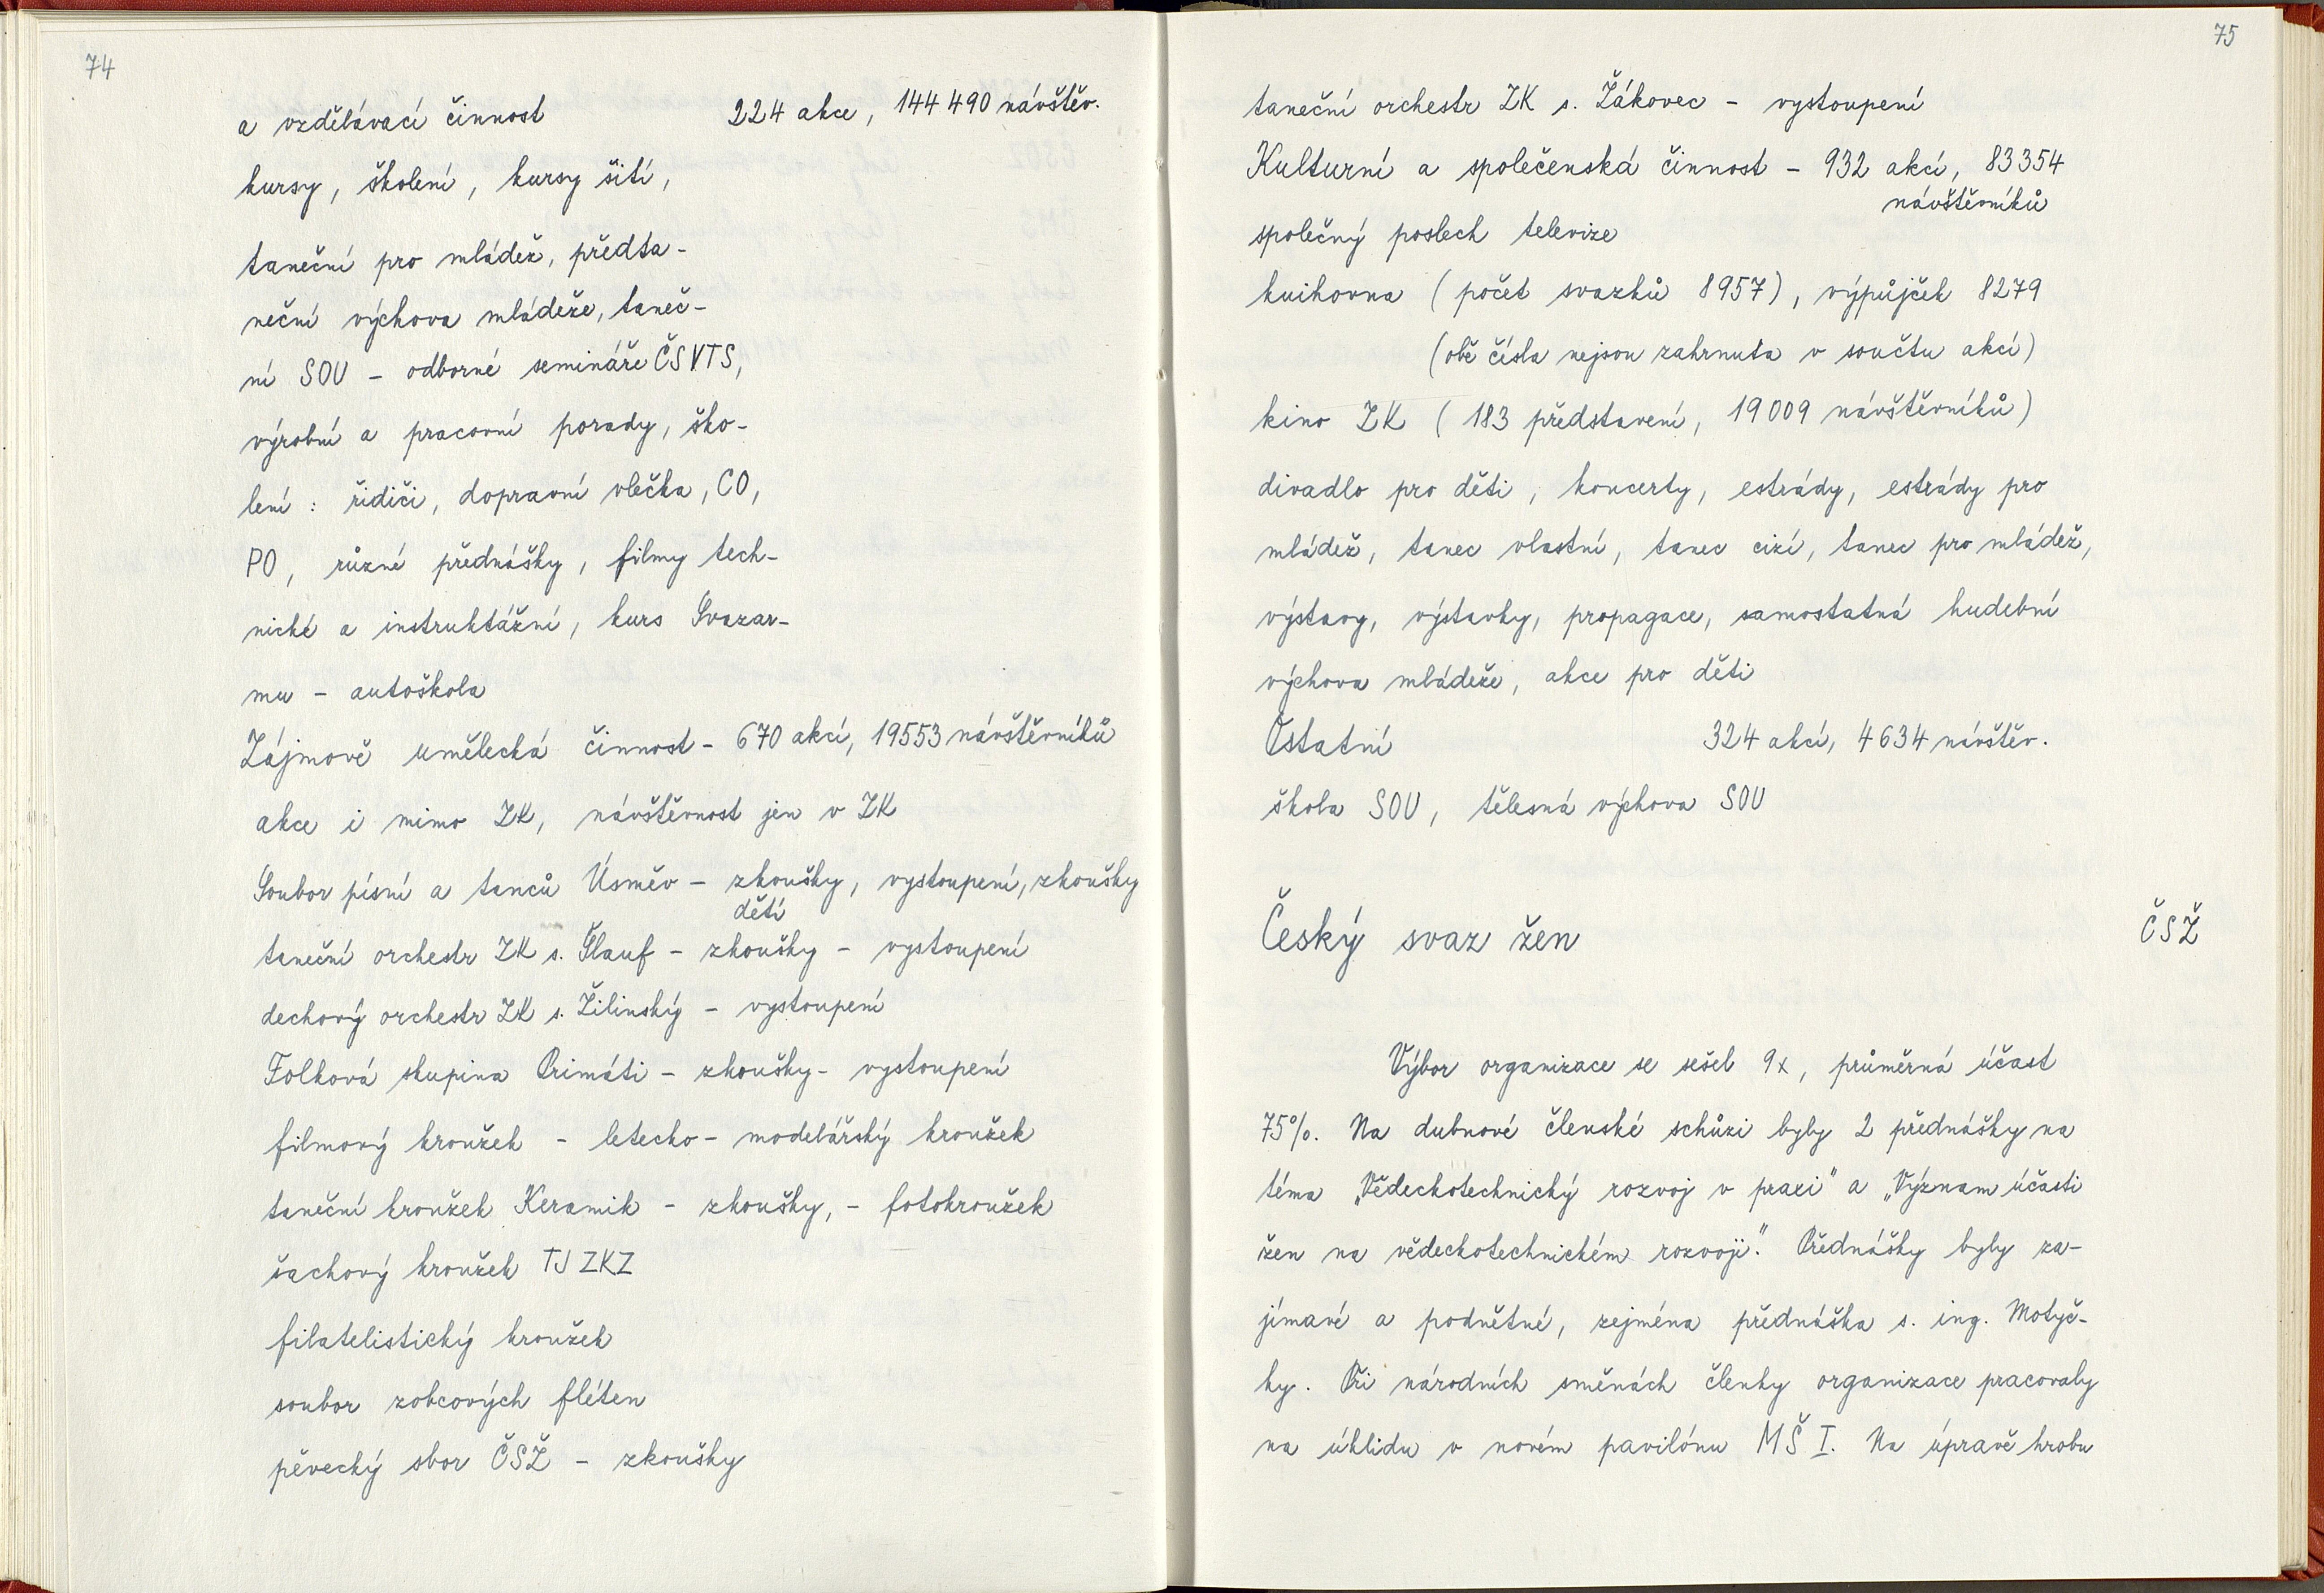 74
a vzdělávací činnost 224 akce, 144 490 návštěv.
kursy, školení, kursy šití,
taneční pro mládež, předta-
neční výchova mládeže, taneč-
ní SOU - odborné semináře ČSVTS,
výrobní a pracovní porady, ško-
lení : řidiči, dopravní vlečka, CO,
PO, různé přednášky, filmy tech-
nické a instruktážní, kurs Svazar-
mu - autoškola
Zájmově umělecká činnost - 670 akcí, 19553 návštěvníků
akce i mimo ZK, návštěvnost jen v ZK
Soubor písní a tanců Úsměv - zkoušky, vystoupení, zkoušky
dětí
taneční orchestr ZK s. Šlauf - zkoušky - vystoupení
dechový orchestr ZK s. Žilinský - vystoupení
Folková skupina Primáti - zkoušky - vystoupení
filmový kroužek - letecko - modelářský kroužek
taneční kroužek Keramik - zkoušky, - fotokroužek
šachový kroužek TJ ZKZ
filatelistický kroužek
soubor zobcových fléten
pěvecký sbor ČSŽ - zkoušky
75
taneční orchestr ZK s. Žákovec - vystoupení
Kulturní a společenská činnost - 932 akcí, 83354
návštěvníků
společný poslech televize
knihovna (počet svazků 8957), výpůjček 8279
(obě čísla nejsou zahrnuta v součtu akcí)
kino ZK (183 představení, 19 009 návštěvníků)
divadlo pro děti, koncerty, estrády, estrády pro
mládež, tanec vlastní, tanec cizí, tanec pro mládež,
výstavy, výstavky, propagace, samostatná hudební
výchova mládeže, akce pro děti
Ostatní 324 akcí, 4 634 návštěv.
škola SOU, tělesná výchova SOU
Český svaz žen ČSŽ
Výbor organizace se sešel 9x, průměrná účast
75%. Na dubnové členské schůzi byly 2 přednášky na
téma „Vědeckotechnický rozvoj v praxi" a „Význam účasti
žen na vědeckotechnickém rozvoji". Přednášky byly za-
jímavé a podnětné, zejména přednáška s. ing. Motyč-
ky. Při národních směnách členky organizace pracovaly
na úklidu v novém pavilónu MŠ I. Na úpravě hrobu